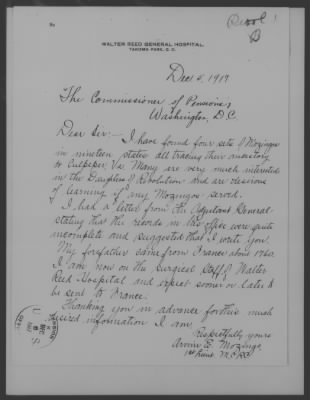 WALTER REED GENERAL HOSPITAL,
TAKOMA PARK, D. C.
Dec 5, 1917
The Commissioner of Pensions
Washington, D.C.
Dear Sir:- I have found four sets of Mozingos
in nineteen states all tracing their ancestry
to Culpeper, Va. Many are very much interested
in the Daughters of Revolution and are desirous
of learning if any Mozingos served.
I had a letter from the Adjutant General
stating that the records in his office were quite
incomplete and suggested that I write you.
My forefather came from France about 1760.
I am now on the Surgical Staff of Walter
Reed Hospital and expect sooner or later to
be sent to France.
Thanking you in advance for this much
desired information I am,
Respectfully yours
Arvine E. Mozingo
1st Lieut. M.O.R.C.